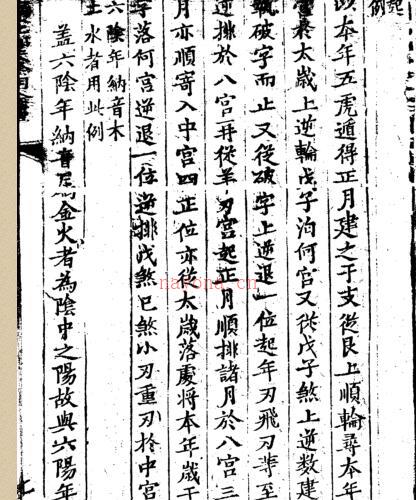 起例
以本年五虎遁得正月建之干支從艮上順輪尋本年
太歲上逆輪戊子泊何宮又從戊子煞上逆數建
破字而止又從破字上逆退一位起年刃飛刃等至
逆排於八宮再從羊刃宮起正月順排諸月於八宮三
月亦順寄入中宮四正位亦從太歲落處將本年歲干
字落何宮逆退一位逆排戊煞巳煞小刃重刃於中宮
六陰年納音木
土水者用此例
蓋六陰年納音屬金火者為陰中之陽故與六陽年
nayona.cn